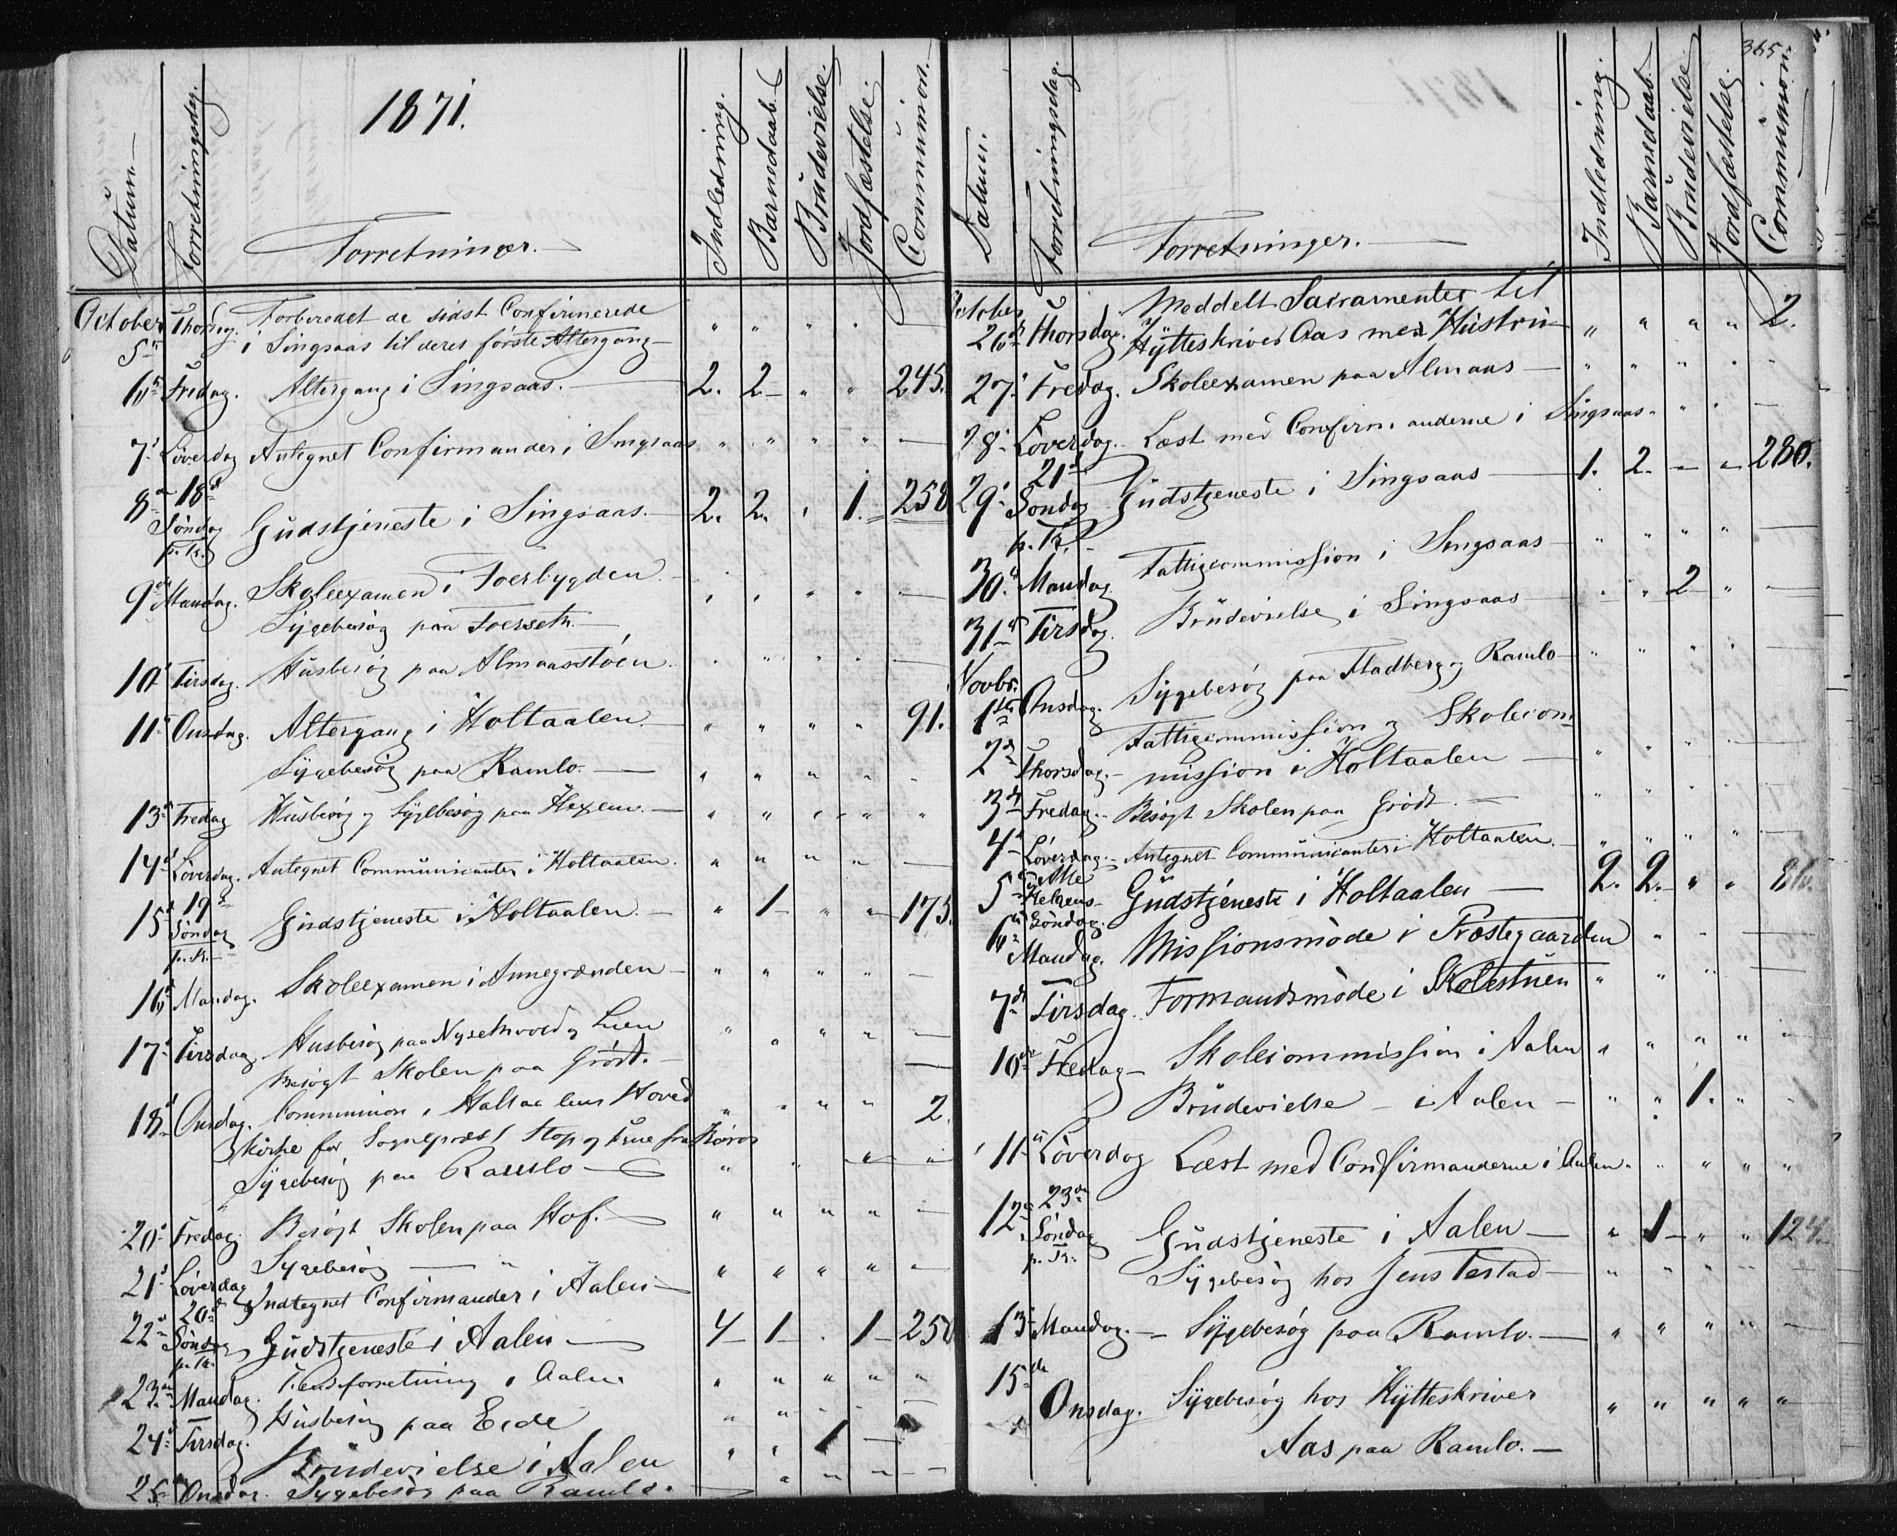 1871.
Datum Forretningsdag. Forretninger. Indledning. Barnedaab. Brudevielse. Jordfæstelse. Communion.
October Thorsdag. Forberedet de sidst Confirmerede
5te i Singsaas til deres første Altergang
6te Fredag. Altergang i Singsaas. 2. 2 " " 245.
7de Löverdag Antegnet Confirmander i Singsaas " " " "
8de 18de Söndag p. Tr. Gudstjeneste i Singsaas. 2. 2. " 1. 258
9de Mandag. Skoleexamen i Foerbygden
Sygebesög paa Foerseth
10de Tirsdag. Husbesög paa Almaasstöen
11te Onsdag. Altergang i Holtaalen " " " " 91.
Sygebesög paa Ramlo. " " " "
13de Fredag Husbesög og Sygebesög paa Hexem " " " "
14de Löverdag. Antegnet Communicanter i Holtaalen. " " " "
15de 19de Söndag p. Tr. Gudstjeneste i Holtaalen. " 1 " " 175.
16de Mandag. Skoleexamen i Annegrænden " " " "
17de Tirsdag Husbesög paa Nysethvold og Lien
Besögt Skolen paa Grödt.
18de Onsdag. Communion i Holtaalens Hoved " " " " 2.
kirke for Sognepræst Stop og Frue fra Röros
Sygebesög paa Ramlo
20de Fredag. Besögt Skolen paa Hof. " " " "
Sygebesög "
21de Löverdag Indtegnet Confirmander i Aalen " " " "
22de 20de Söndag p. Tr. Gudstjeneste i Aalen 4 1 . 1 250
23de Mandag. forretning i Aalen " " " "
Husbesög paa Eide
24de Tirsdag. Brudevielse i Aalen " " 1
25de Onsdag. Sygebesög paa Ramlo.
365
Datum. Forretningsdag. Forretninger. Indledning. Barnedaab. Brudevielse Jordfæstelse. Communion.
October Meddelt Sacramentet til
26de Thorsdag. Hytteskriver Aas med Hustru " " " " 2.
27de Fredag. Skoleexamen paa Almaas " " " "
28de Löverdag. Læst med Confirmanderne i Singsaas " " "
29de 21de Söndag p. Tr. Gudstjeneste i Singsaas 1. 2. " " 280.
30te Mandag Fattigcommission i Singsaas " " " "
31te Tirsdag. Brudevielse i Singsaas " " 2 "
Novbr.
1ste Onsdag. Sygebesög paa Fladberg og Ramlo " " " "
2den Thorsdag. Fattigcommission og Skolecom=
mission i Holtaalen " " " "
3die Fredag. Besögt Skolen paa Grödt. " " " "
4de Löverdag. Antegnet Communicanter i Holtaalen. " " " "
5te Alle Helgens Söndag. Gudstjeneste i Holtaalen 2. 2. " " 86.
6te Mandag. Missionsmöde i Præstegaarden " "
7de Tirsdag. Formandsmöde i Skolestuen " " " "
10de Fredag Skolecommission i Aalen " " " "
Brudevielse i Aalen " " 1. "
11te Löverdag Læst med Confirmanderne i Aalen " " " "
12te 23de Söndag p. Tr. Gudstjeneste i Aalen " 1 " " 124.
Sygebesög hos Jens Testad " " " "
13de Mandag. Sygebesög paa Ramlo. " " " "
15de Onsdag. Sygebesög hos Hytteskriver " " " "
Aas paa Ramlo.